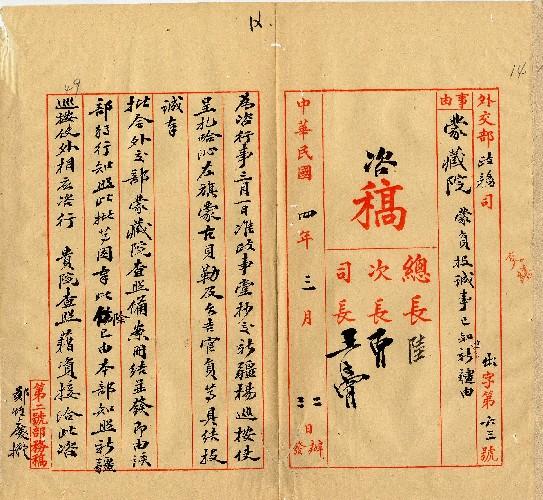 外交部政務司
事由
蒙藏院 蒙員投誠事已知新疆由
出字第一六三號
咨稿
總長 陸
次長 曹
司長 王
中華民國四年三月 日辦發
為咨行事三月一日准政事堂抄交新疆楊巡按使
呈札哈沁左旗蒙古貝勒及台吉官員等具結投
誠奉
批令外交部蒙藏院查照備案附結並發即由該
部行知照此批等因奉此除已由本部知照新疆
巡按使外相應咨行 貴院查照藉資接洽此咨
第二號部務稿